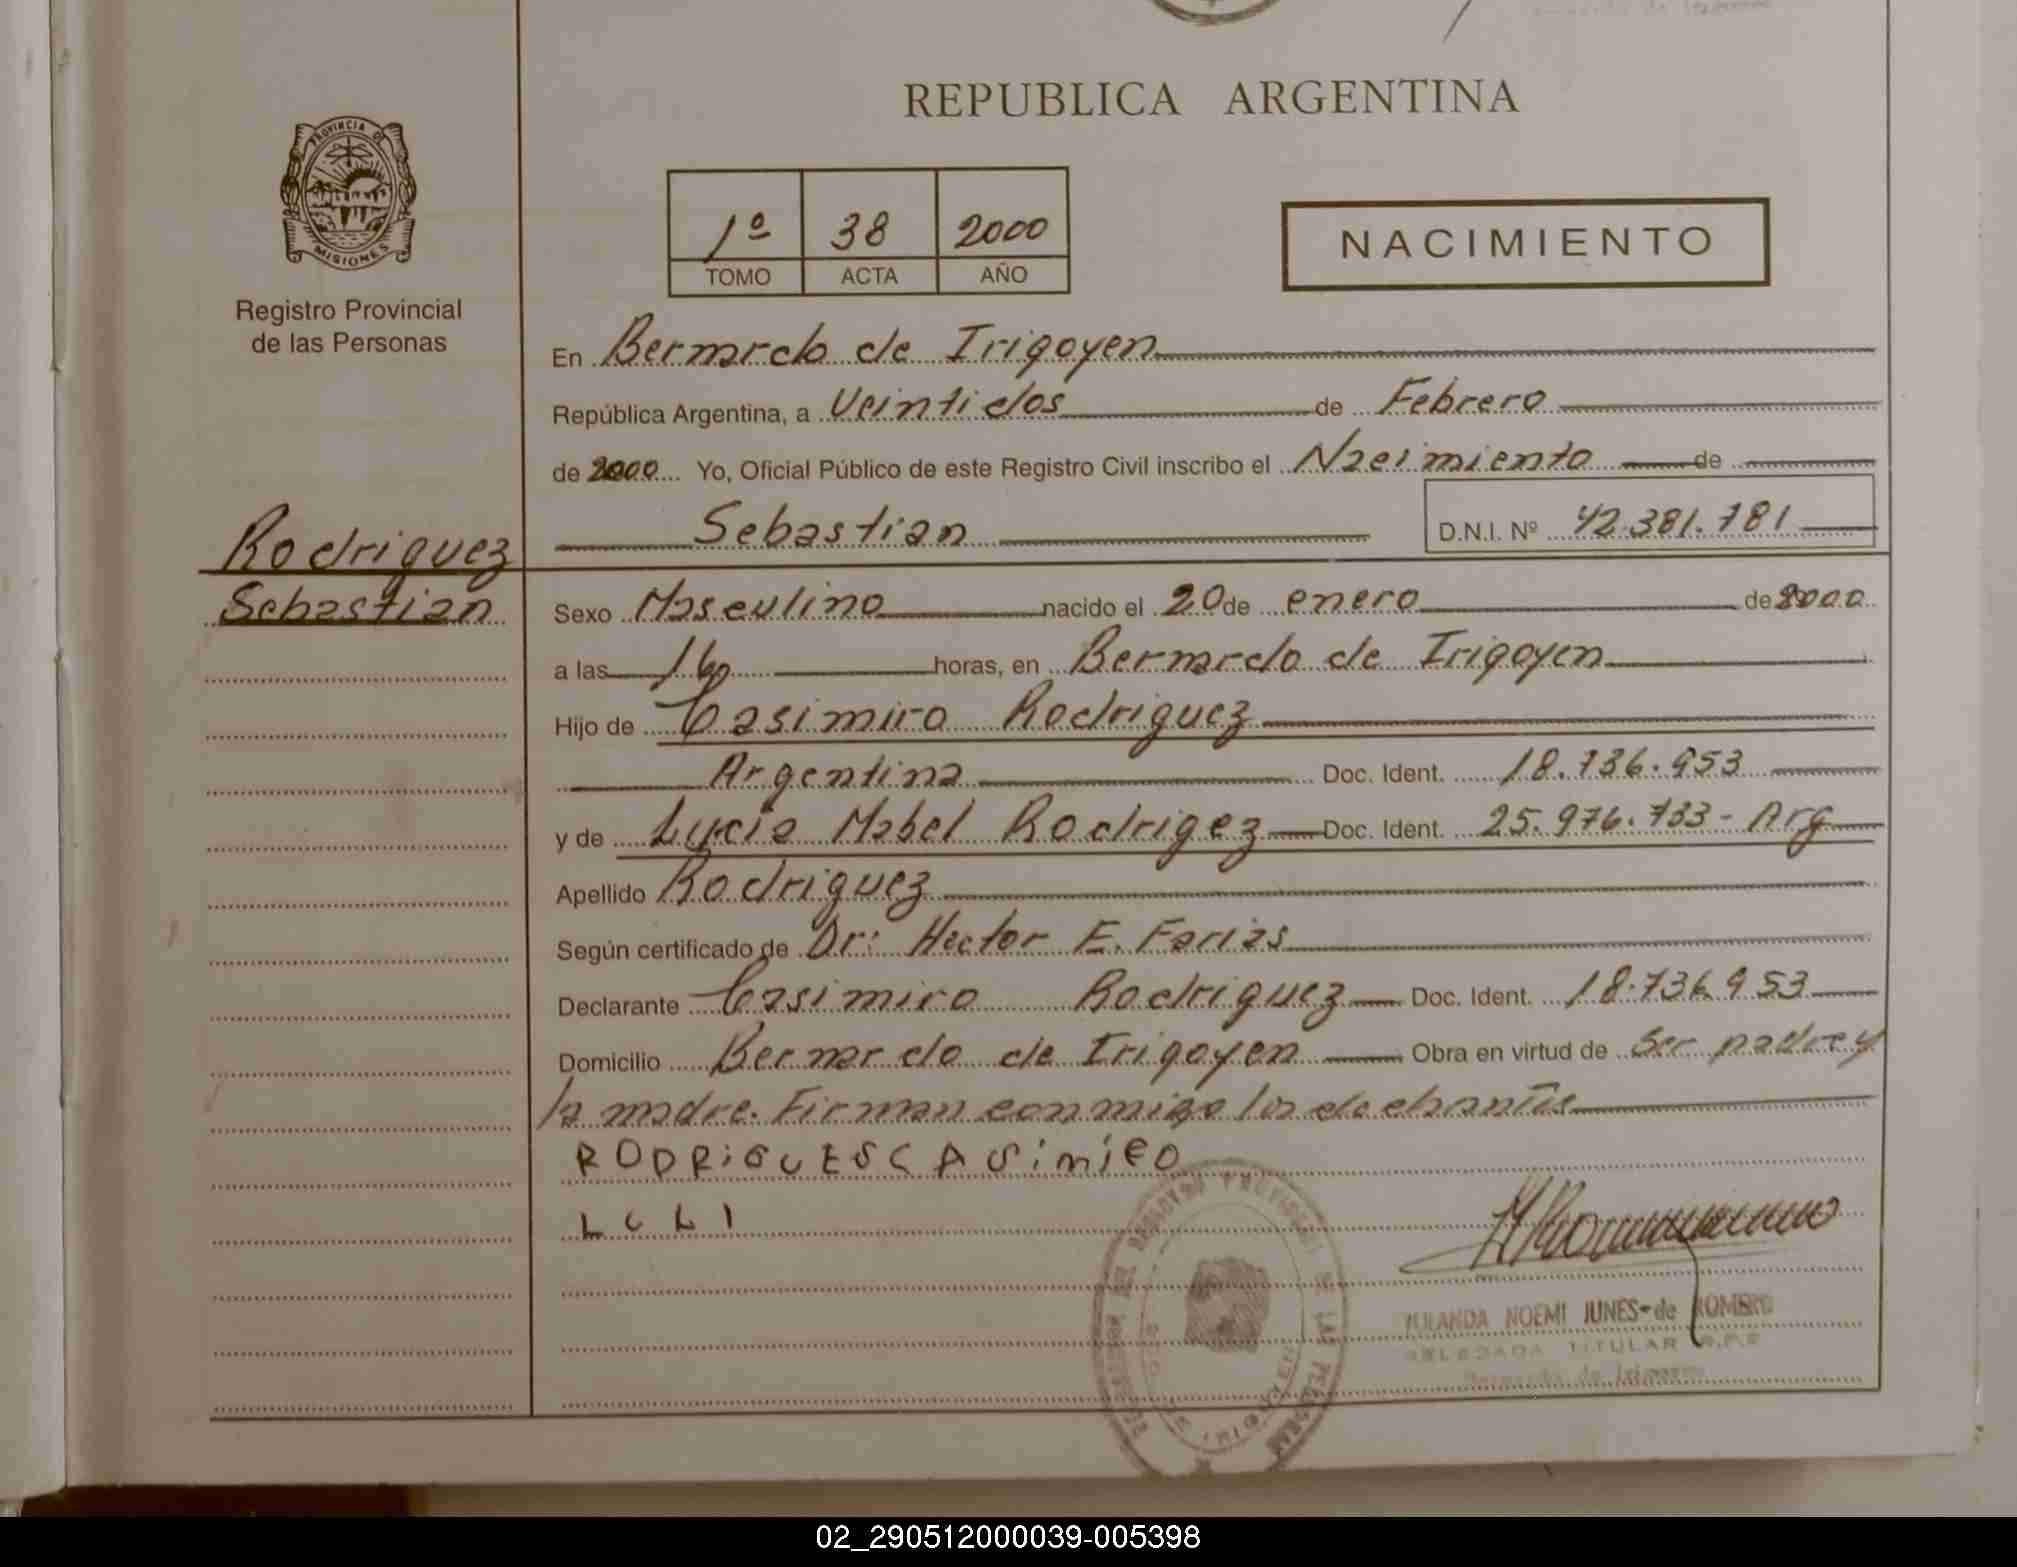 REPUBLICA ARGENTINA
PROVINCIA D
MISIONES
Registro Provincial
de las Personas
1º 38 2000
TOMO ACTA AÑO
NACIMIENTO
En Bernardo de Irigoyen
República Argentina, a Veintidos de Febrero
de 2000 Yo, Oficial Público de este Registro Civil inscribo el Nacimiento de
Sebastian D.N.I. Nº 42.381.781
Rodriguez
Sebastian
Sexo Masculino nacido el 20 de enero de 2000
a las 16 horas, en Bernardo de Irigoyen
Hijo de Casimiro Rodriguez
Argentina Doc. Ident. 18.736.953
y de Lucia Mabel Rodrigez Doc. Ident. 25.976.733- Arg
Apellido Rodriguez
Según certificado de Dr: Hector E. Farias
Declarante Casimiro Rodriguez Doc. Ident. 18.736.953
Domicilio Bernardo de Irigoyen Obra en virtud de Ser padre y
la madre. Firman conmigo los
RODRIGUES CASIMIRO
YOLANDA NOEMI JUNES de ROMERO
DELEGADA TITULAR R.P.P
Bernardo de Irigoyen
02_290512000039-005398